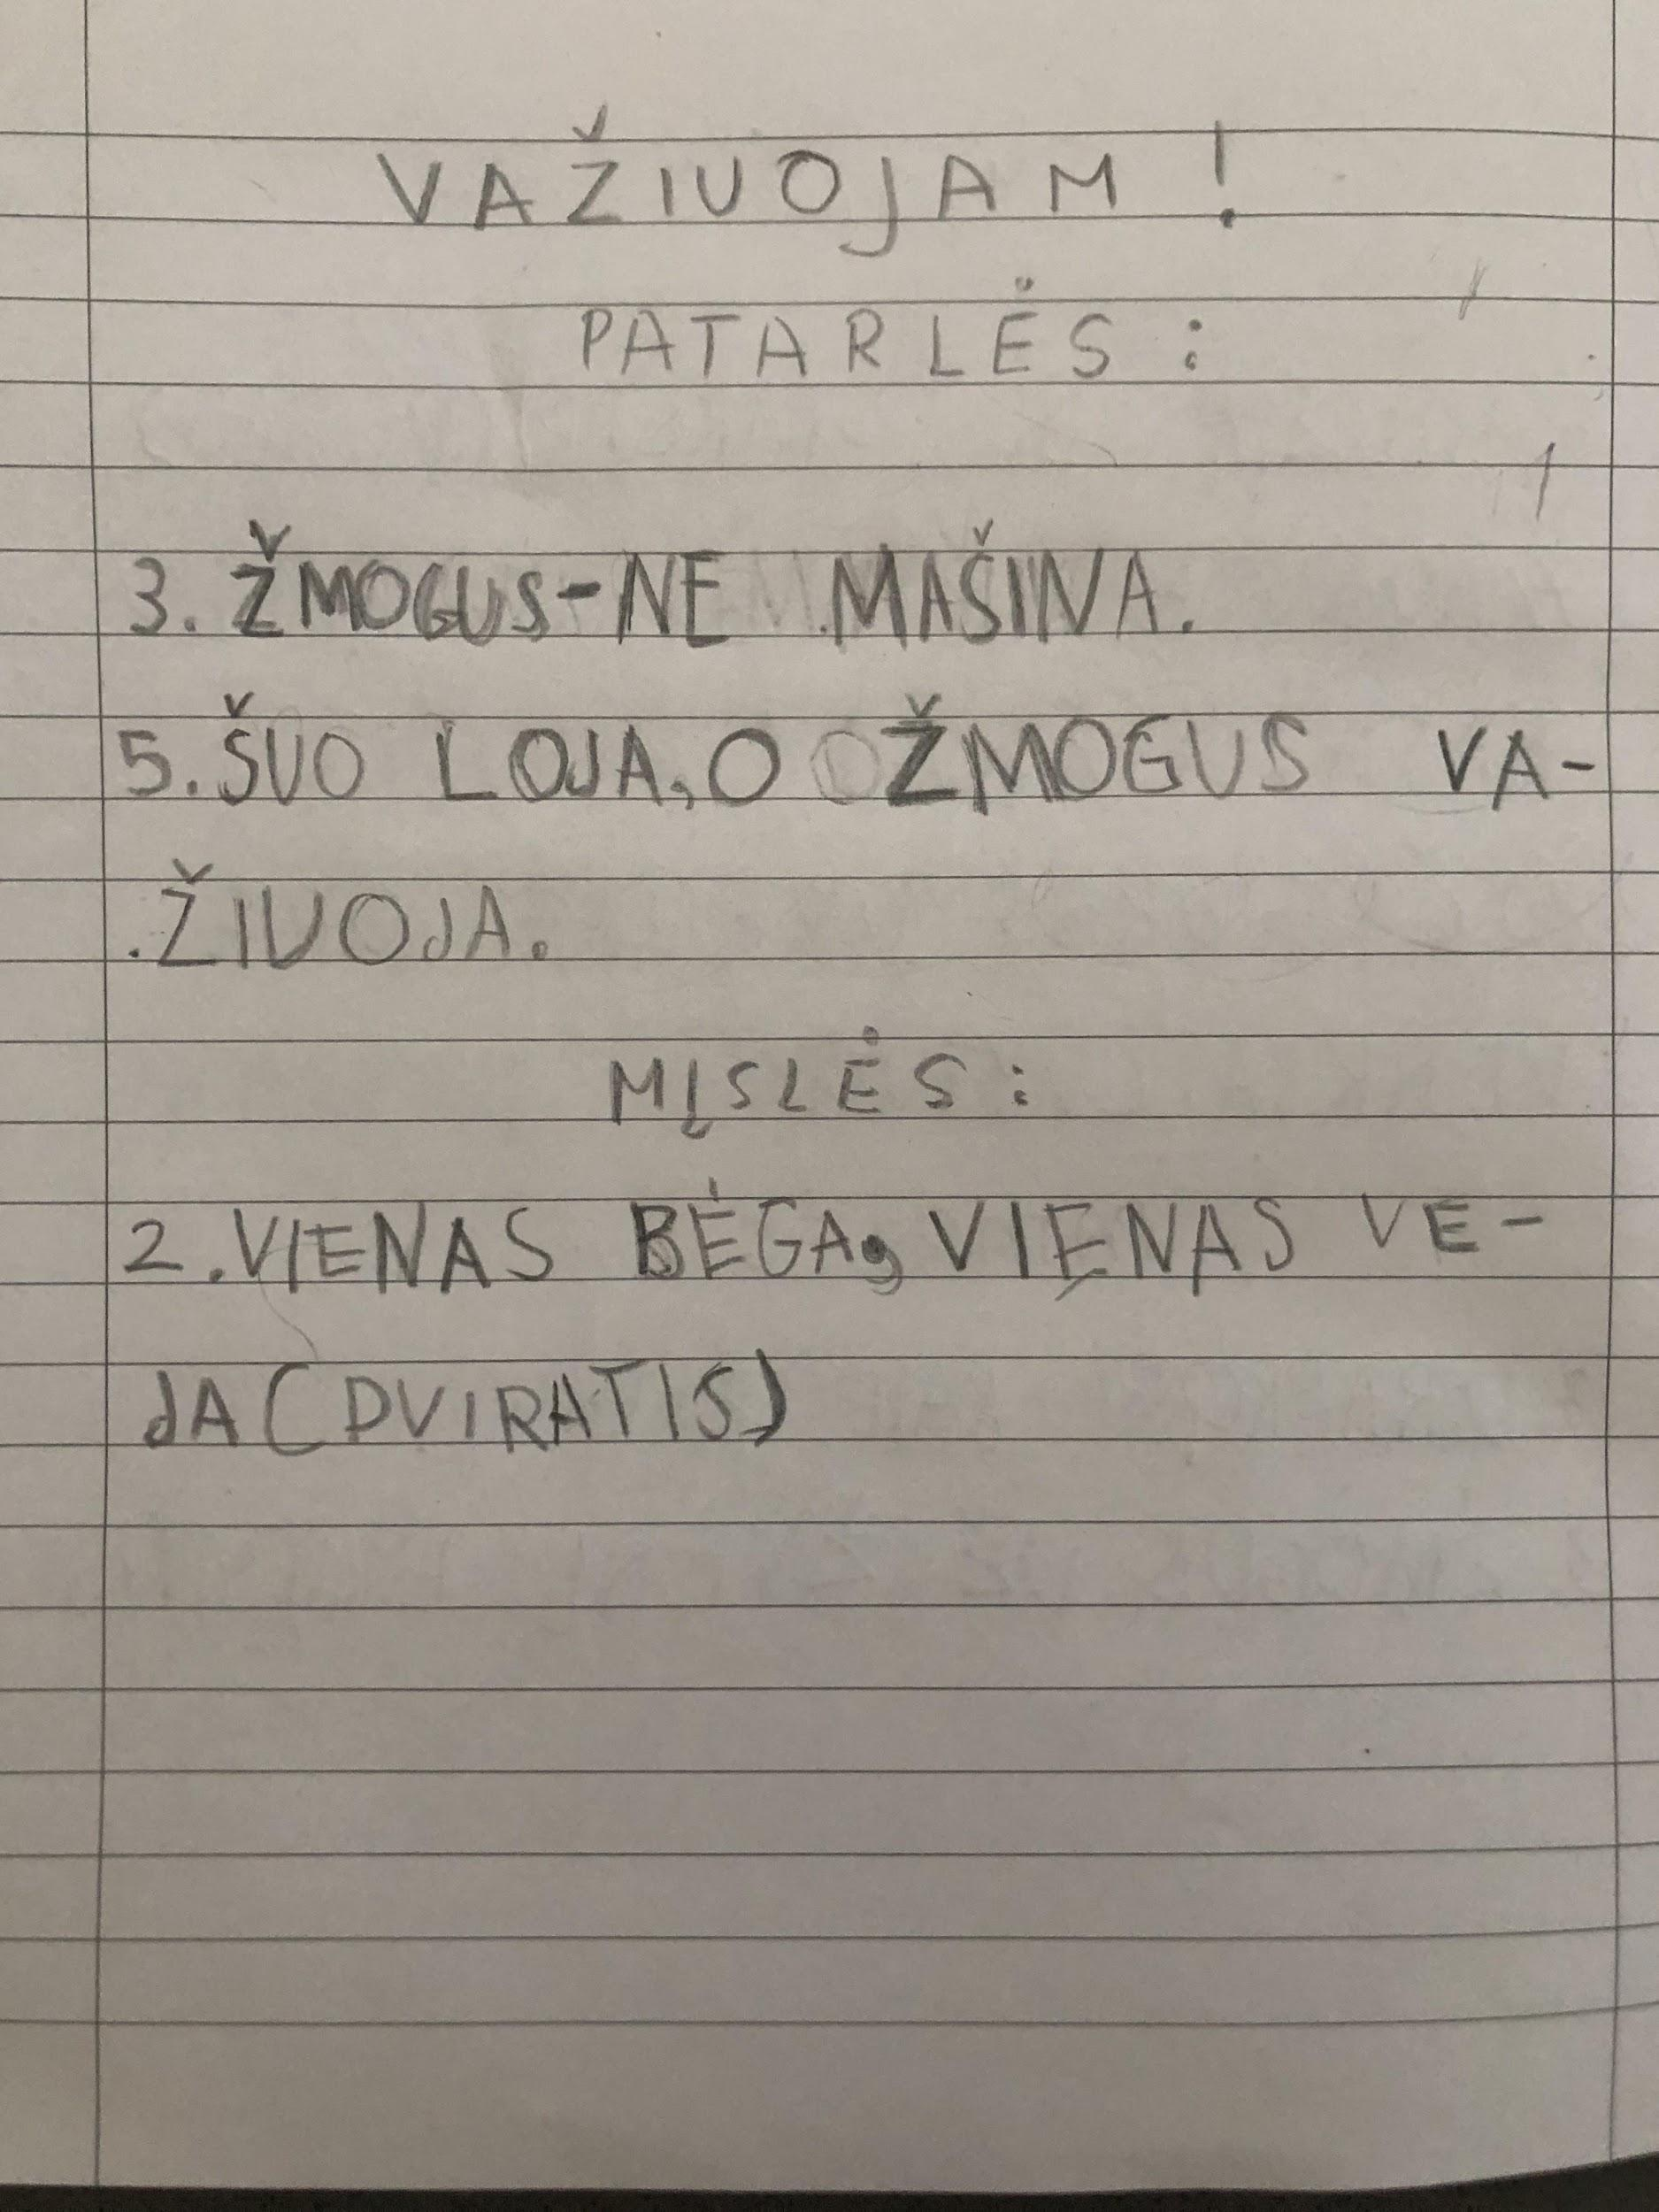 VAŽIUOJAM !
PATARLĖS :
3. ŽMOGUS-NE MAŠINA.
5. ŠUO LOJA, O ŽMOGUS VA-
ŽIUOJA.
MĮSLĖS :
2. VIENAS BĖGA, VIENAS VE-
JA (DVIRATIS)